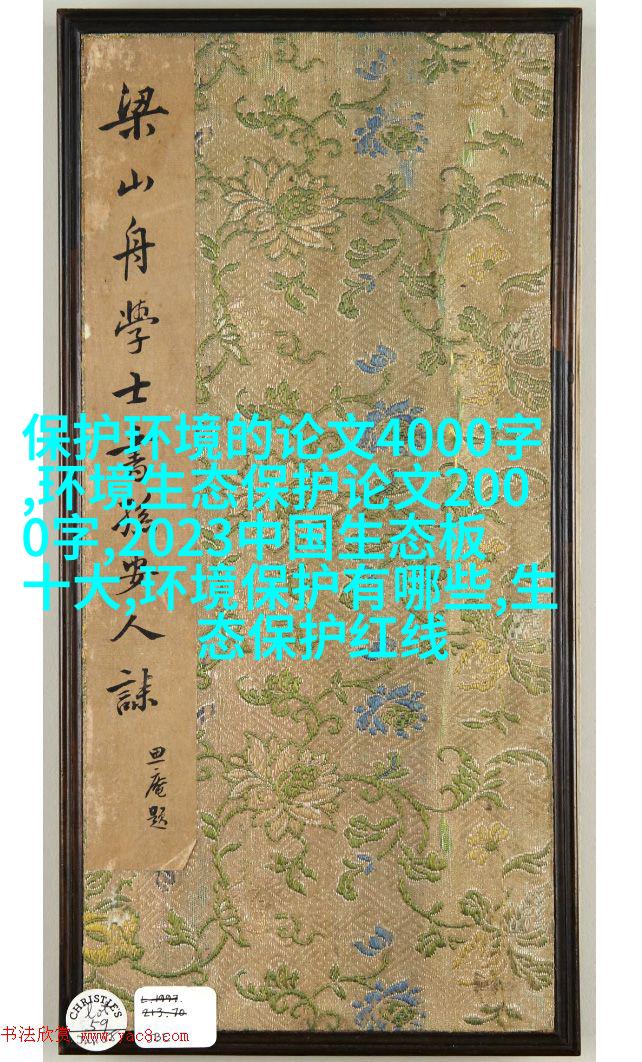 梁山舟學士書孫安人誄
思庵題
保护环境的论文4000字
,环境生态保护论文200
0字,2023中国生态板
十大,环境保护有哪些,生
态保护红线
CHRISTIE'S
Lot
59
L.1997.
213.70
书法欣赏 www.yac8.com